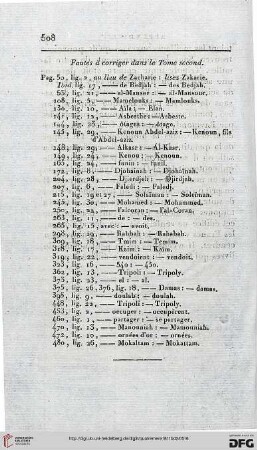 508
Fautes à corriger dans le Tome second.
Pag. 50, lig. 2, au lieu de Zacharie : lisez Zakarie.
Ibid. lig. 17, — de Bedjah : — des Bedjah.
65, lig. 21, — al-Mansor : — al-Mansour.
108, lig. 5, — Mamelouks : — Mamlouks.
136, lig. 10, — Aïla : — Élan.
141, lig. 12, — Asbeste : — Asbeste.
154, lig. 28, — étages : — étage.
145, lig. 29, — Kenoun Abdel-aziz : — Kenoun, fils
d'Abdel-aziz.
148, lig. 29, — Alkasr : — Al-Kasr.
149, lig. 24, — Kenon : — Kenoun.
163, lig. 24,
172, lig. 8, — Djohaïnah : — Djohaïnah.
204, lig. 28, — Djerdjeh : — Djirdjah.
207, lig. 6, — Faledi : — Faledj.
215, lig. 19 et 27, — Solaïman : — Soleïman.
245, lig. 30, — Mohamed : — Mohammed.
250, lig. 24, — Falcoran : — l'al-Coran.
263, lig. 11, — de : — des.
265, lig. 15, avec — avoit.
298, lig. 29, — Rahbah : — Rahebah.
309, lig. 28, — Tmim : — Temim.
318, lig. 17, — Kaim : — Kaïm.
319, lig. 22, — vendoient : — vendoit.
323, lig. 16, — 540 : — 450.
362, lig. 13, — Tripoli : — Tripoly.
373, lig. 23, — el : — al.
375, lig. 26, 376, lig. 18, — Damas : — damas.
398, lig. 9, — doulab : — doulah.
448, lig. 22, — Tripoli : — Tripoly.
453, lig. 2, — occuper : — occupèrent.
460, lig. 1, — partager : — se partager.
470, lig. 13, — Manouniah : — Mansouniah.
472, lig. 10, — ornées d'or : — ornées.
480, lig. 26, — Mokaltam : — Mokattam.
DFG